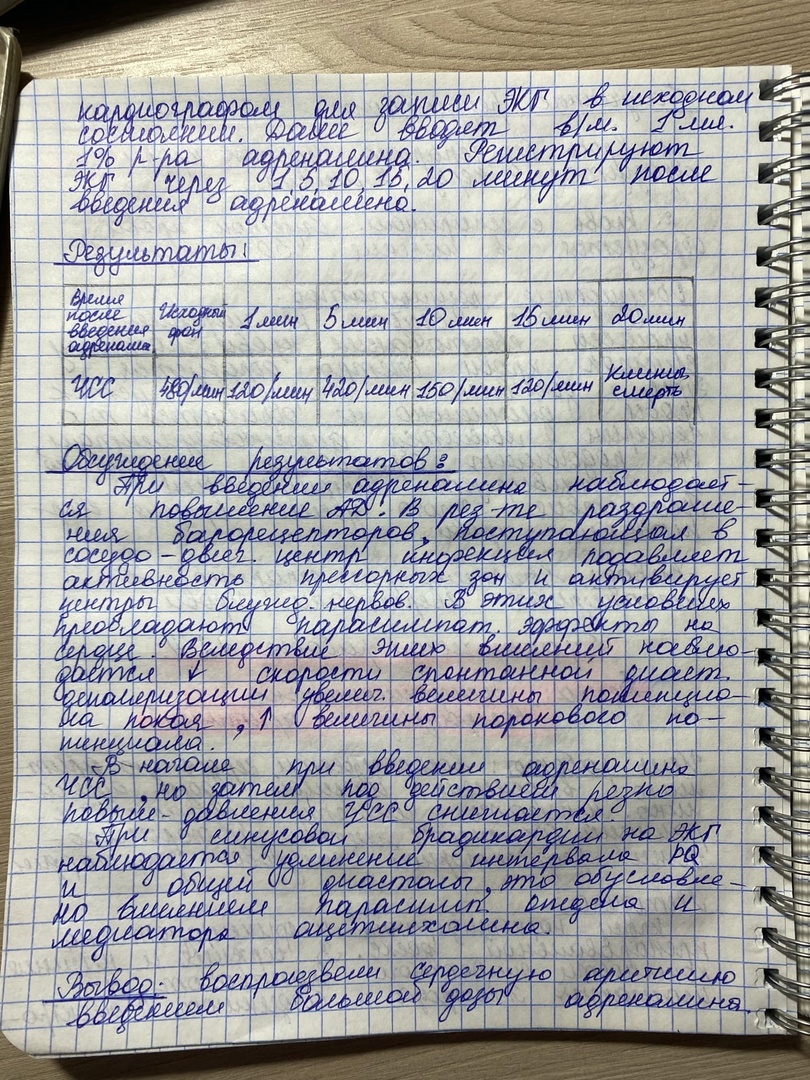 кардиографом для записи ЭКГ в исходном
состоянии. Далее вводят в/м. 1 мл.
1% р-ра адреналина. Регистрируют
ЭКГ через 1, 5, 10, 15, 20 минут после
введения адреналина.
Результаты:
Время после введения адренали. Исходный фон 1 мин 5 мин 10 мин 15 мин 20 мин
ЧСС 480/мин 120/мин 420/мин 150/мин 120/мин Клинич. смерть
Обсуждение результатов:
При введении адреналина наблюдает-
ся повышение АД. В рез-те раздраже-
ния барорецепторов, поступающая в
сосудо-двиг. центр инфекция подавляет
активность прессорных зон и активирует
центры блужд. нервов. В этих условиях
преобладают парасимпат. эффекты на
сердце. Вследствие этих влияний наблю-
дается ↓ скорости спонтанной диаст.
деполяризации увелич. величины потенциа-
ла покоя, ↑ величины порокового по-
тенциала.
В начале при введении адреналина
ЧСС, но затем под действием резко
повыш- давления ЧСС снижается.
При синусовой брадикардии на ЭКГ
наблюдается удлинение интервала PQ
и общей диастолы, это обусловле-
но влиянием парасимп. отдела и
медиатора ацетилхолина.
Вывод: воспроизвели сердечную аритмию
введением большой дозы адреналина.